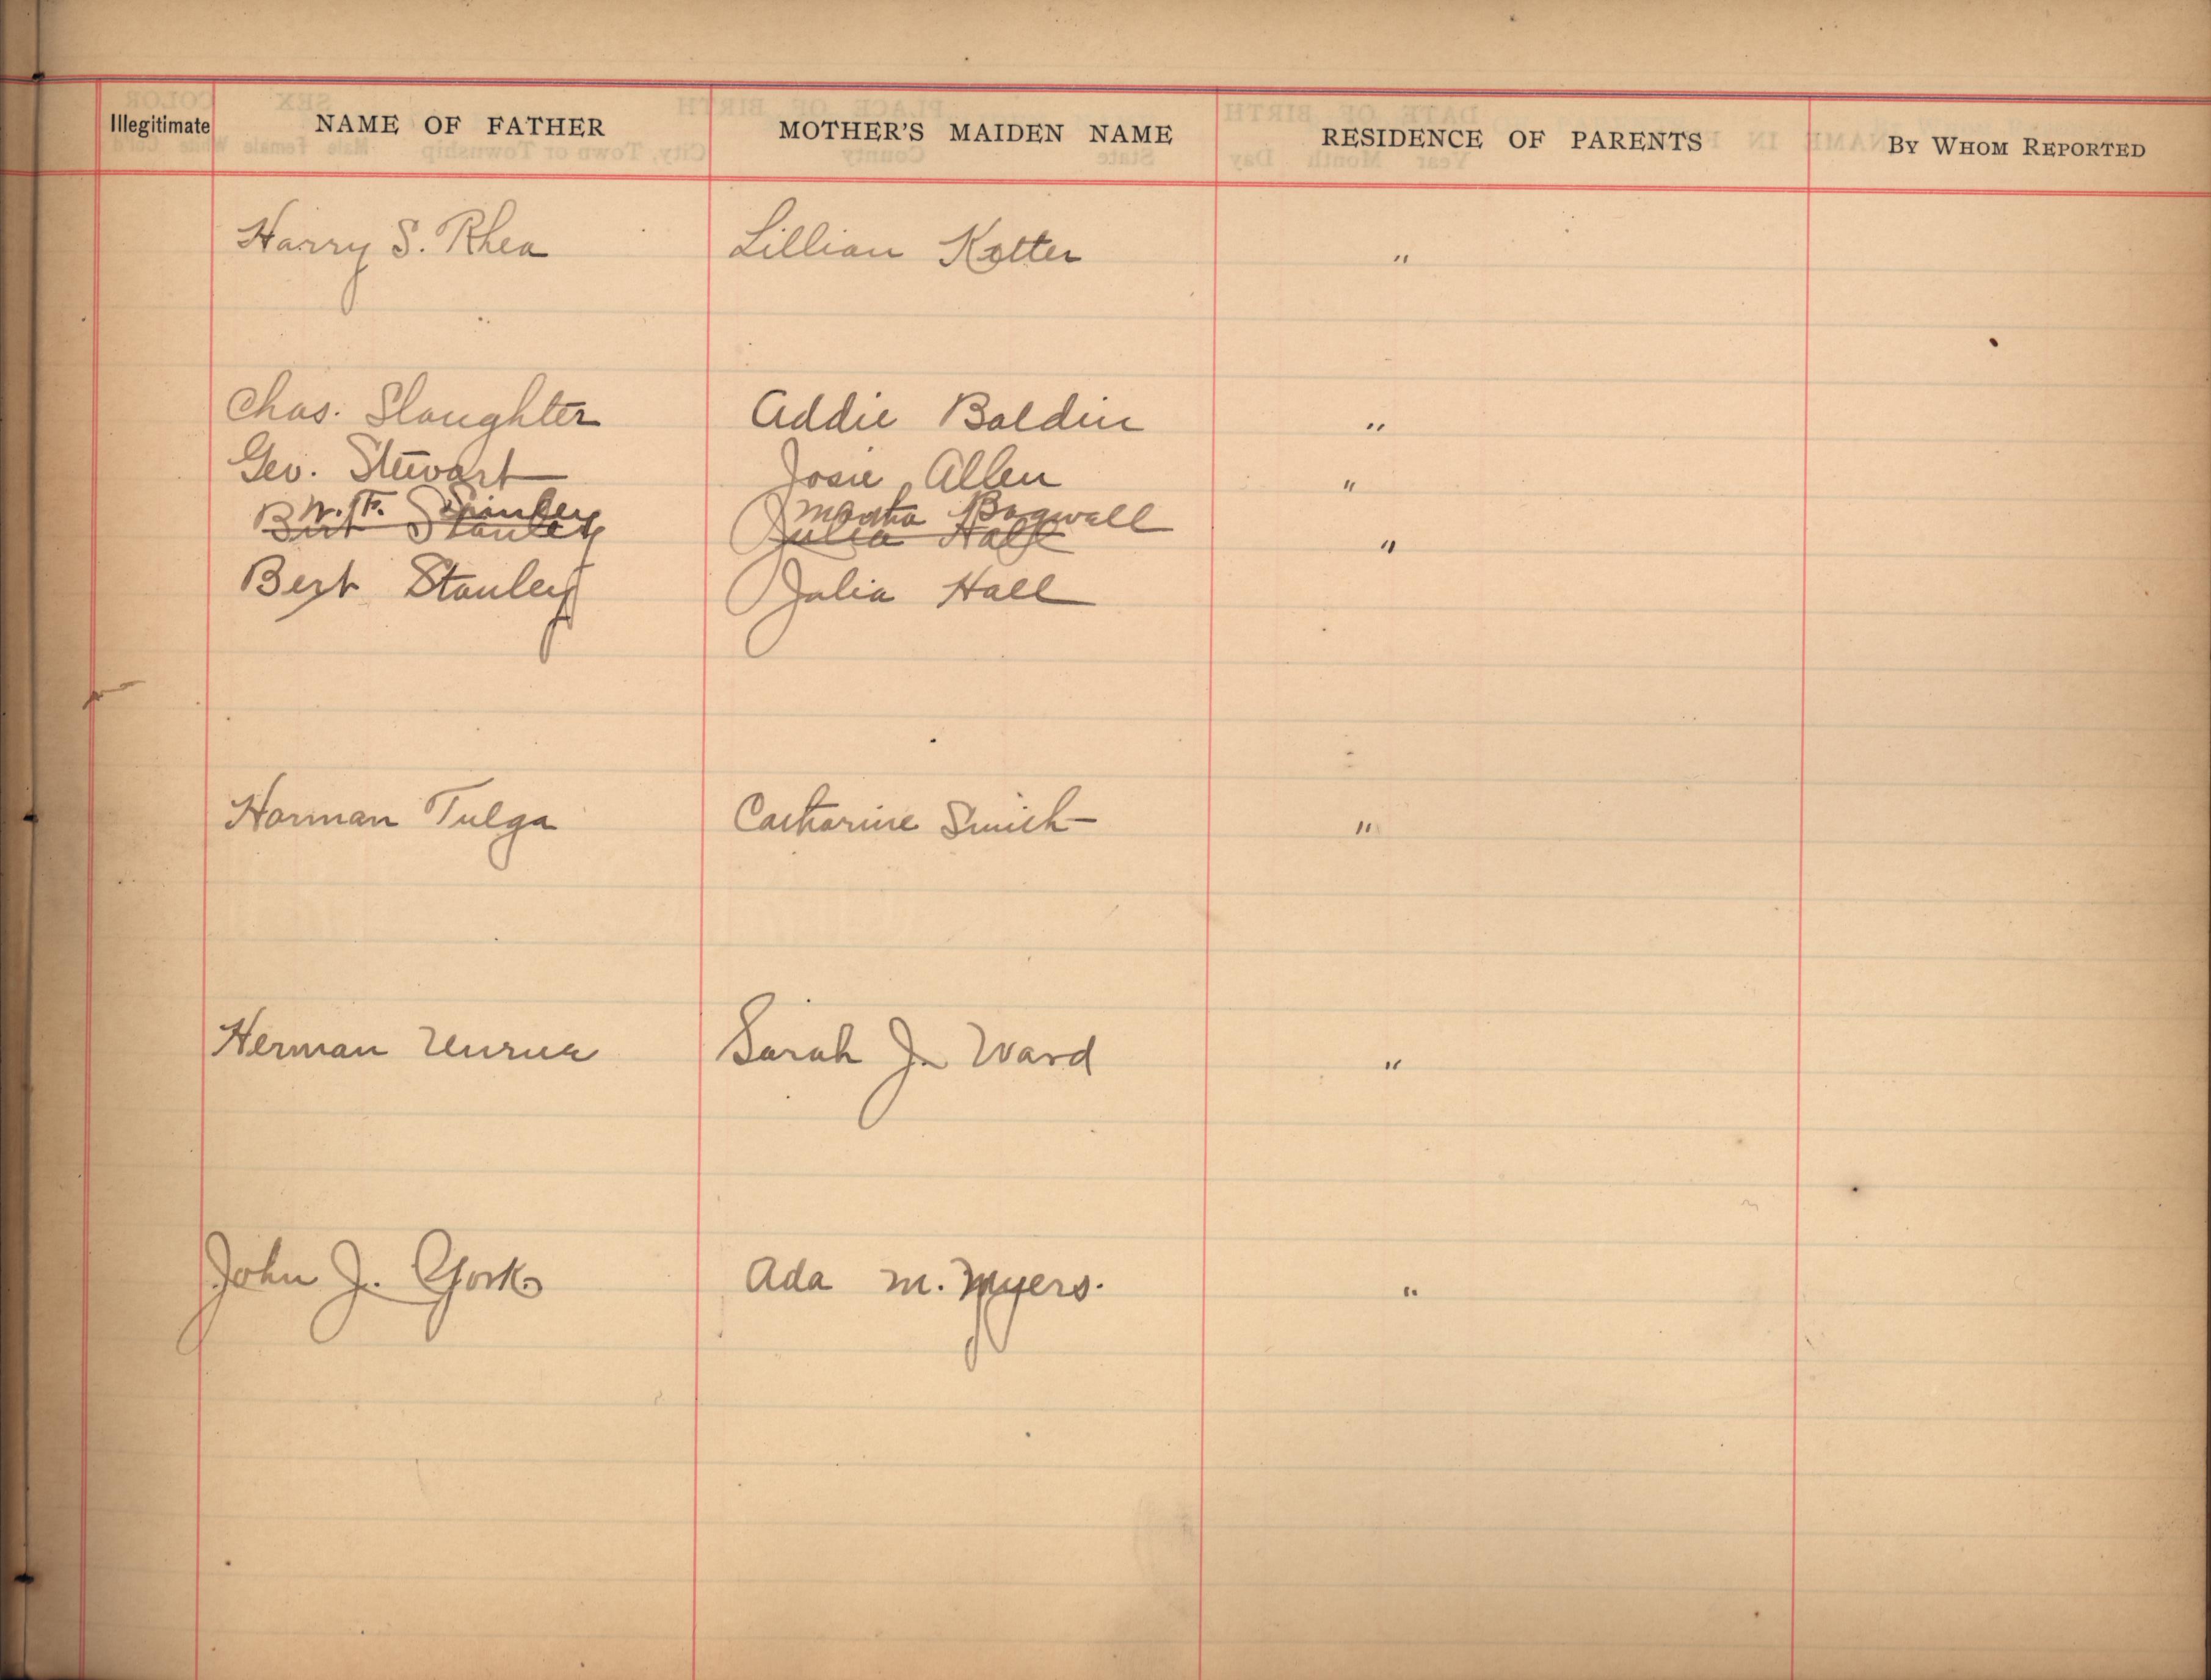 Illegitimate NAME OF FATHER MOTHER'S MAIDEN NAME RESIDENCE OF PARENTS BY WHOM REPORTED
Harry S. Rhea Lillian Kotter "
Chas. Slaughter Addie Boldin "
Geo. Stewart Josie Allen "
W. H. Martha Bagwell
Bert Stanley Julia Hall "
Bert Stanley Julia Hall
Norman Tulga Catharine Smith "
Herman Sarah J. Ward "
John J. York Ada M. Myers. "